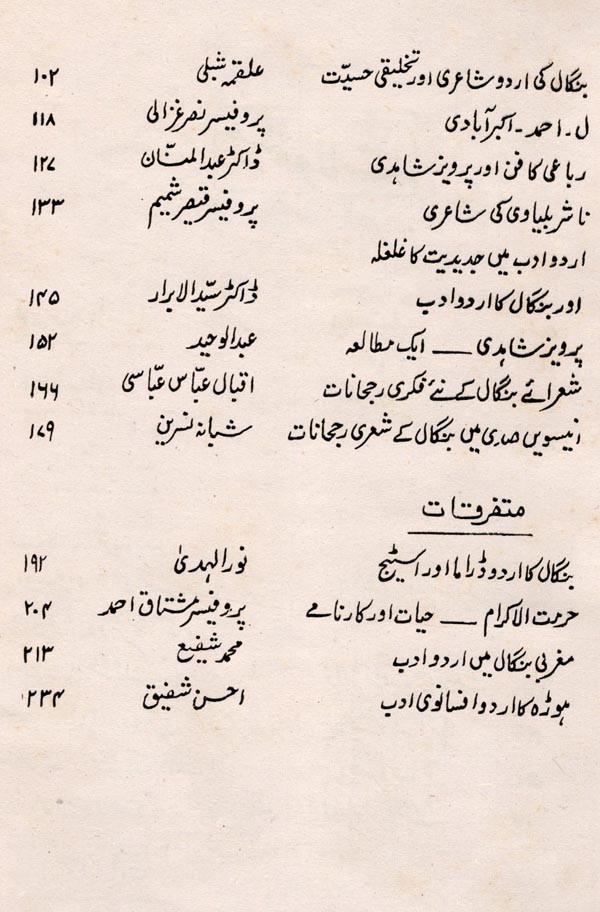 بنگال کی اردو شاعری اور تخلیقی حسیّت علقمہ شبلی ۱۰۲
ل۔ احمد۔ اکبرآبادی پروفیسر نصر غزالی ۱۱۸
رباعی کا فن اور پرویز شاہدی ڈاکٹر عبدالمنّان ۱۲۷
ناشر بلیاوی کی شاعری پروفیسر قیصر شمیم ۱۳۳
اردو ادب میں جدیدیت کا غلغلہ
اور بنگال کا اردو ادب ڈاکٹر سیّد الابرار ۱۴۵
پرویز شاہدی ــــ ایک مطالعہ عبدالوحید ۱۵۲
شعرائے بنگال کے نئے فکری رجحانات اقبال عبّاس عبّاسی ۱۶۶
انیسویں صدی میں بنگال کے شعری رجحانات شبانہ نسرین ۱۷۹
متفرقات
بنگال کا اردو ڈراما اور اسٹیج نورالہدیٰ ۱۹۲
حرمت الاکرام ــــ حیات اور کارنامے پروفیسر مشتاق احمد ۲۰۴
مغربی بنگال میں اردو ادب محمد شفیع ۲۱۳
ہوڑہ کا اردو افسانوی ادب احسن شفیق ۲۳۴